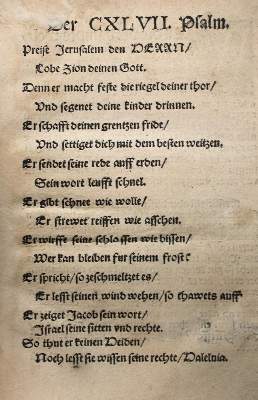 Der CXLVII. Psalm.
Preist Jerusalem den HERRN/
Lobe Zion deinen Gott.
Denn er macht feste die riegel deiner thor/
Vnd segenet deine kinder drinnen.
Er schafft deinen grentzen fride/
Vnd settiget dich mit dem besten weitzen.
Er sendet seine rede auff erden/
Sein wort leufft schnel.
Er gibt schnee wie wolle/
Er strewet reiffen wie asschen.
Er wirffe seine schlossen wie bissen/
Wer kan bleiben fur seinem frost?
Er spricht/ so zeschmeltzet es/
Er lesst seinen wind wehen/ so thawets auff
Er zeiget Jacob sein wort/
Israel seine sitten vnd rechte.
So thut er keinen Heiden/
Noch lesst sie wissen seine rechte/ Haleluia.